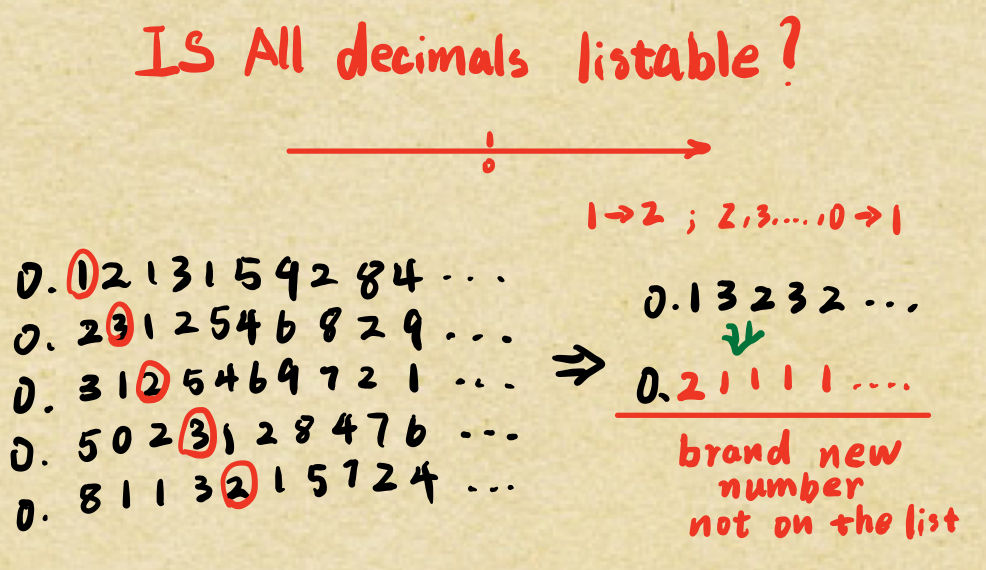 IS All decimals listable?
0
1→2 ; 2,3....,0→1
0.1213159284...
0.2312546829...
0.3125469721...
0.5023128476...
0.8113215724...
⇒
0.13232...
0.21111....
brand new
number
not on the list